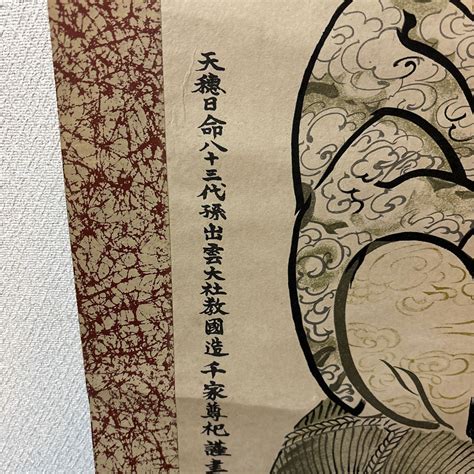 天穗日命八十三代孫出雲大社教國造千家尊祀謹畫